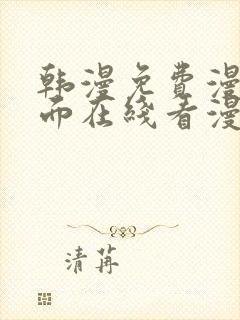 韩漫免费漫
而在线看漫
清苒